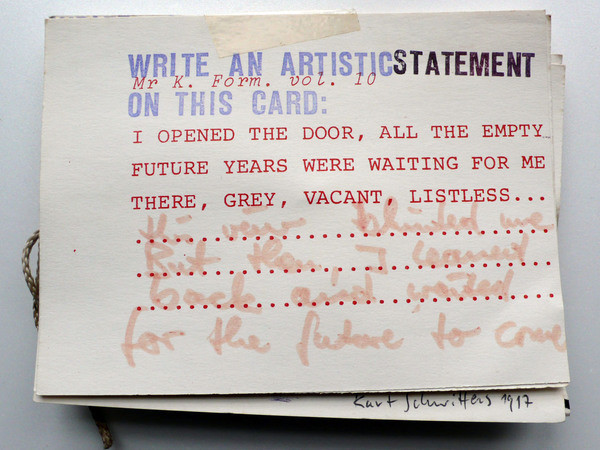 WRITE AN ARTISTIC STATEMENT
Mr K. Form. vol. 10
ON THIS CARD:
I OPENED THE DOOR, ALL THE EMPTY
FUTURE YEARS WERE WAITING FOR ME
THERE, GREY, VACANT, LISTLESS...
this view blinded me
But then, I leaned
back and waited
for the future to come
Kurt Schwitters 1917